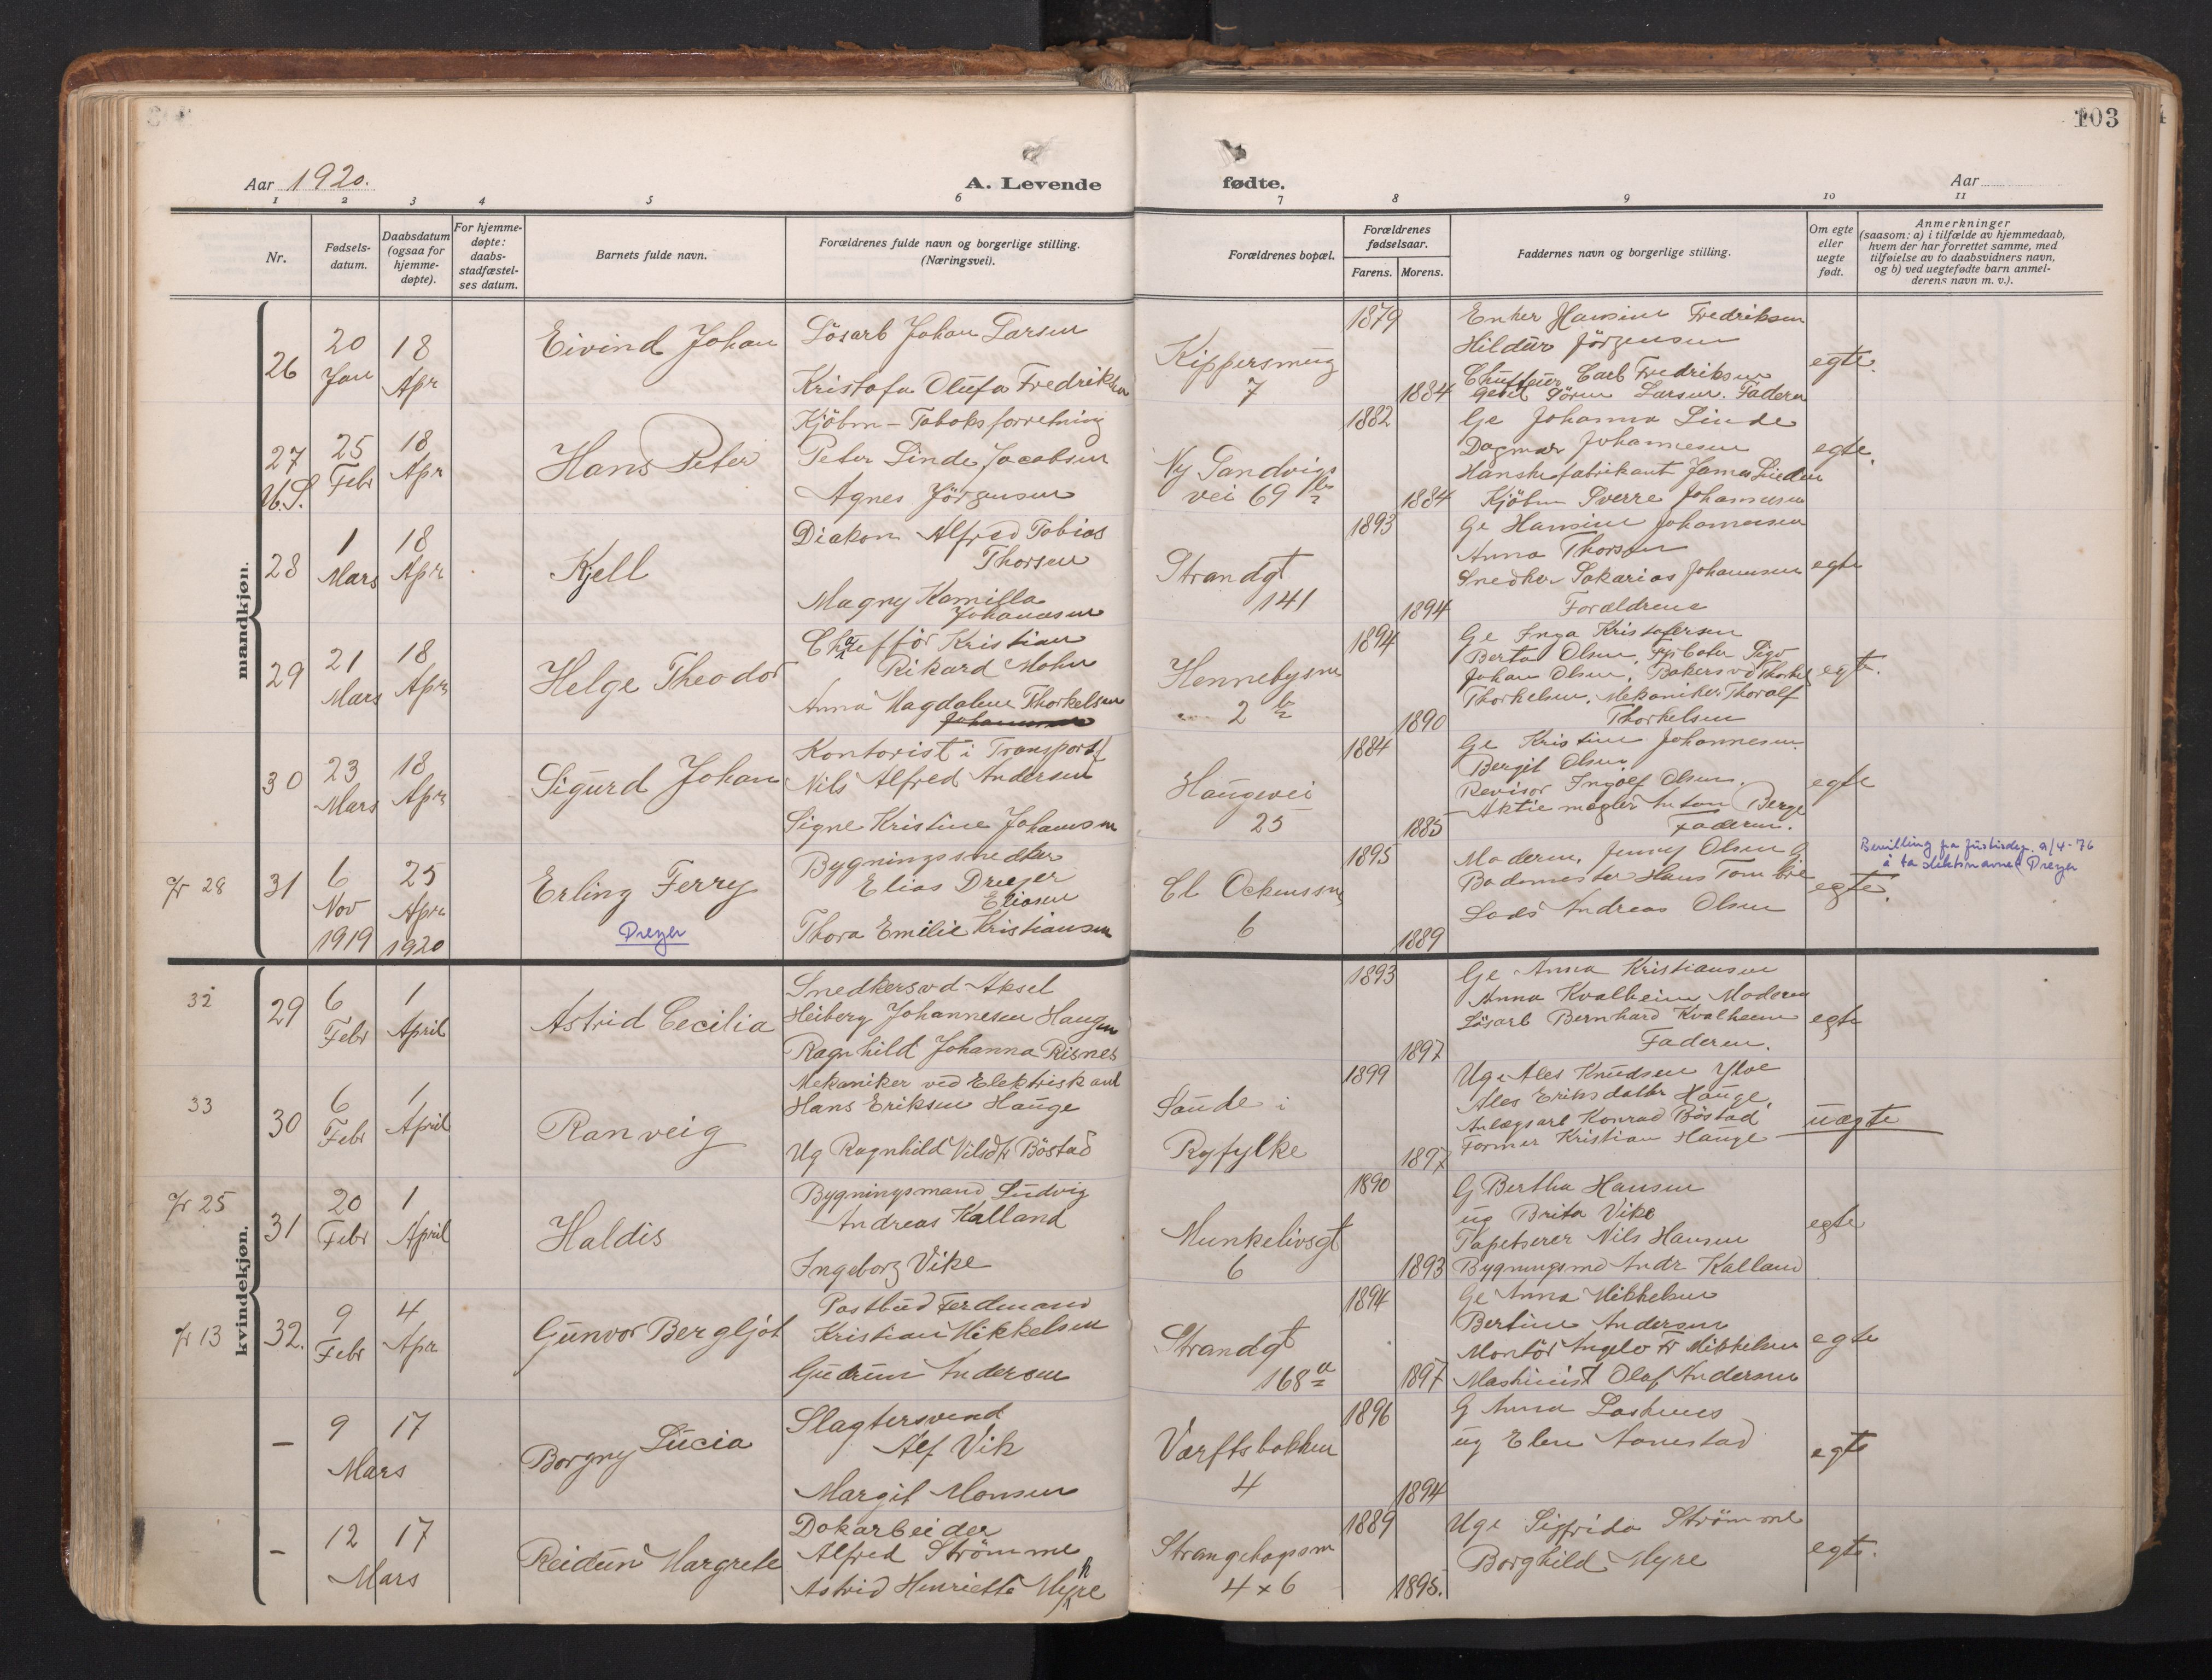 103
Aar 1920.
A. Levende fødte.
Aar
1 2 3 4 5 6 7 8 9 10 11
Nr.
Fødsels-
datum.
Daabsdatum
(ogsaa for
hjemme-
døpte).
For hjemme-
døpte:
daabs-
stadfæstel-
ses datum.
Barnets fulde navn.
Forældrenes fulde navn og borgerlige stilling.
(Næringsvei).
Forældrenes bopæl.
Forældrenes
fødselsaar.
Farens. Morens.
Faddernes navn og borgerlige stilling.
Om egte
eller
uegte
født.
Anmerkninger
(saasom: a) i tilfælde av hjemmedaab,
hvem der har forrettet samme, med
tilføielse av to daabsvidners navn,
og b) ved uegtefødte barn anmel-
derens navn m. v.).
mandkjøn.
26
20
Jan
18
Apr
Eivind Johan
Lösarb Johan Larsen
Kristofa Olufa Fredriksen
Kippersmug
7
1879
1884
Enker Hansine Fredriksen
Hildur Jörgensen
Chuffeur Carl Fredriksen
Gesel Sören Larsen. Faderen
egte.
27
U.S.
25
Febr
18
Apr
Hans Peter
Kjöbm - Taboksforretning
Peter Linde Jacobsen
Agnes Jörgensen
Ny Sandvigs
vei 69
1882
1884
Ge Johanna Linde
Dagmar Johannesen
Hanskefabrikant James Linden
Kjöbm Sverre Johannesen
egte.
28
1
Mars
18
Apr
Kjell
Diakon Alfred Tobias
Thorsen
Magny Kamilla
Johannesen
Strandgt
141
1893
1894
Ge Hansine Johannesen
Anna Thorsen
Snedker Sakarias Johannsen
Forældrene
egte
29
21
Mars
18
Apr
Helge Theodor
Chaufför Kristian
Rikard Mohn
Anna Magdalene Thorkelsen
Hennebysm
2 b
1894
1890
Ge Inga Kristofersen
Berta Olsen,
Johan Olsen, Bakersvd Thorkel
Thorkelsen. Mekaniker Thoralf
Thorkelsen
egte.
30
23
Mars
18
Apr
Sigurd Johan
Kontorist i Transportf
Nils Alfred Andersen
Signe Kristine Johansen
Haugevei
25
1884
1885
Ge Kristine Johannesen.
Bergit Olsen.
Revisor Ingolf Olsen.
Aktiemægler Anton Berge
Faderen.
egte
Fr 28
31
6
Nov
1919
25
Apr
1920
Erling Ferry
Dreyer
Bygningssnedker
Elias Dreyer
Eliasen
Thora Emilie Kristiansen
Cl Ockenssm
6
1895
1889
Moderen, Jenny Olsen G
Bademester Hans Tombre
Lods Andreas Olsen
egte.
Bevilling fra Justisdep. 9/4-76
å ta slektsnavnet Dreyer
kvindekjøn.
32
29
6
Febr
1
April
Astrid Cecilia
Snedkersvd Aksel
Heiberg Johannesen Haugen
Ragnhild Johanna Risnes
1893
1897
Ge Anna Kristiansen
Anna Kvalheim Moderen
Lösarb Bernhard Kvalheim
Faderen.
egte
33
30
6
Febr
1
April
Ranveig
Mekaniker ved Elektrisk anl
Hans Eriksen Hauge
Ug Ragnhild Nilsdtr Böstad
Saude i
Ryfylke
1899
1897
Uge Ales Knudsen Ytve
Ales Eriksdatter Hauge,
Anlægsarb Konrad Böstad
Former Kristian Hauge
uægte
Fr 25
31
20
Febr
1
April
Haldis
Bygningsmand Ludvig
Andreas Kalland
Ingeborg Vike
Munkelivsgt
6
1890
1893
G Bertha Hansen
ug Brita Vike
Tapetserer Nils Hansen
Bygningsmd Andr Kalland
egte
Fr 13
32.
9
Febr
4
Apr
Gunvor Bergljot
Postbud Ferdinand
Kristian Mikkelsen
Gudrun Andersen
Strandgt
168 a
1894
1897
Ge Anna Mikkelsen
Bertine Andersen
Montör Angelo Fr Mikkelsen
Maskinist Olaf Andersen
egte
-
9
17
Mars
Borgny Lucia
Slagtersvend
Alf Vik
Margit Monsen
Værftsbakken
4
1896
1894
G Anna
ug Elen Aanestad
egte
-
12
17
Mars
Reidun Margrete
Dokarbeider
Alfred Strömme
Astrid Henriette Myhre
Strangehagsm
4 x 6
1889
1895.
Uge Sigfrida Strömme
Borghild Myre
egte.